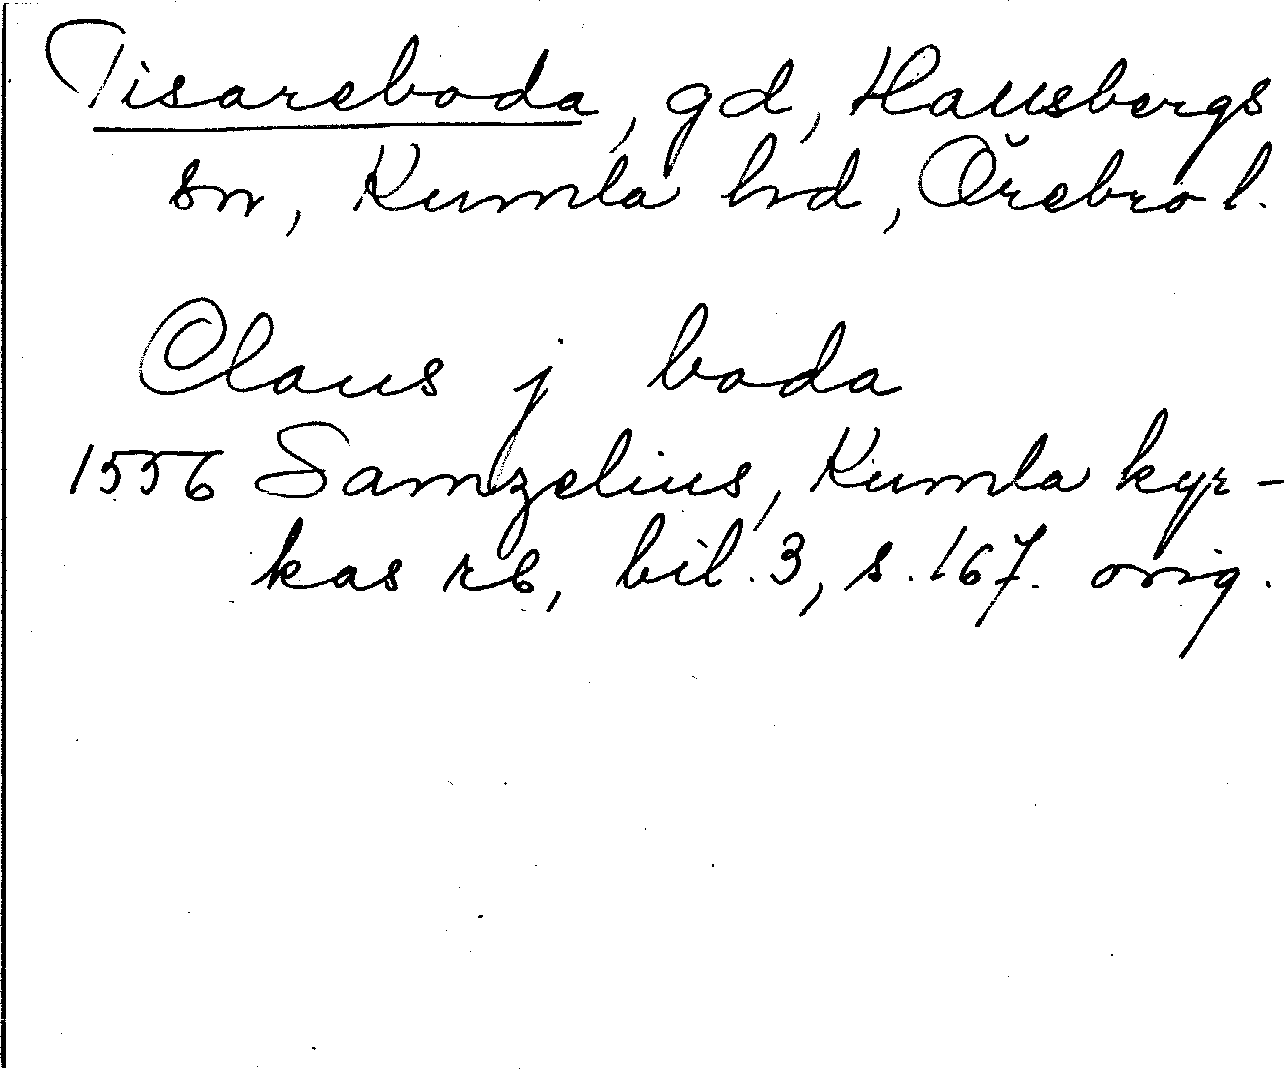 Tisareboda, gd, Hallsbergs
sn, Kumla hd, Örebro l.
Claus j boda
1556 Samzelius, Kumla kyr-
kas rb, bil. 3, s. 167. orig.